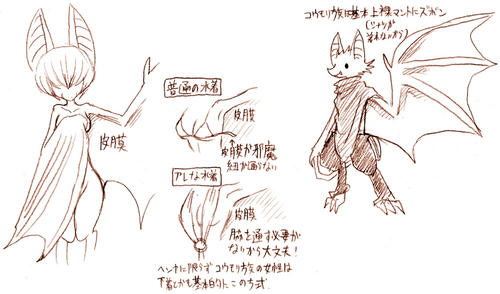 コウモリ族は基本上裸マントにズボン
皮膜
普通の水着
皮膜
皮膜が邪魔
紐が回らない
アレな水着
皮膜
脇を通す必要が
ないから大丈夫！
ヘンナに限らずコウモリ族の女性は
下着とかも基本的にこの方式